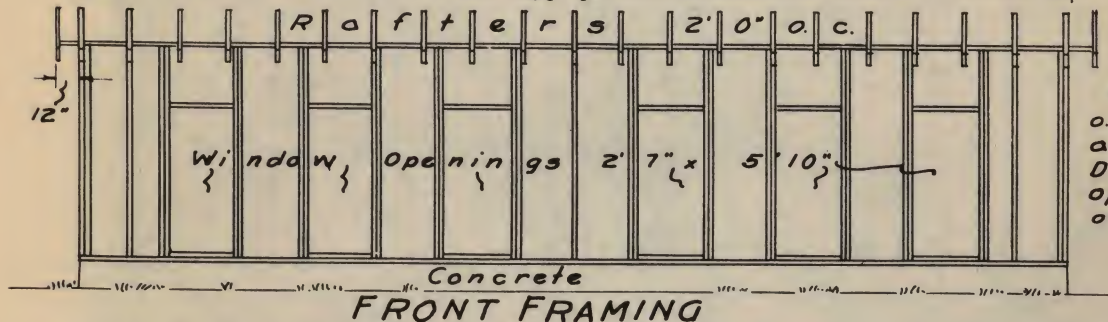 Rafters 2' 0" o.c.
12"
Window Openings 2' 7" x 5' 10"
Concrete
FRONT FRAMING